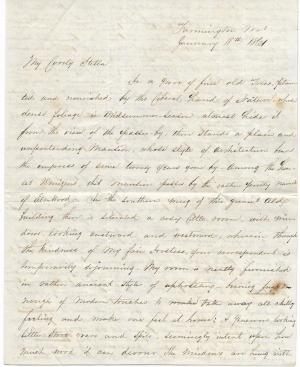 Farmington
January 11th 1861
My Lovely Stella
In a Grove of fine old Trees,
and nourished by the liberal Hand of Nature, whose
dense foliage in Midsummer Season almost hides it
from the view of the passer by there stands a plain and
unpretending Mansion, whose style of Architecture bears
the impress of some twenty years gone by. Among the
this Mansion passes by the rather name
of In the southern wing of this quaint old
building there is situated a cosy little room with win
dows looking eastward and westward, wherein through
the kindness of my fair hostess, your correspondent is
temporarily sojourning. My room is neatly furnished
in rather ancient style of upholstery, having just
enough of Modern touches to take away all chilly
feeling and make one feel at home; A looking
little Stove and seemingly intent upon how
much wood it can devour. The are hung with